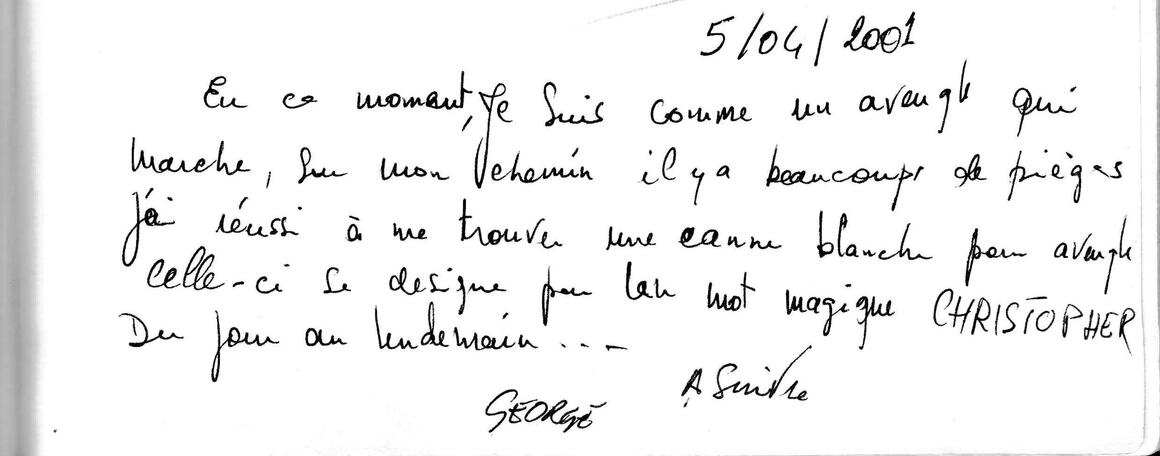 5/04/2001
En ce moment, Je suis comme un aveugle qui
marche, sur mon chemin il y a beaucoups de pièges
j'ai réussi à me trouver une canne blanche pour aveugle
Celle-ci se designe par un mot magique CHRISTOPHER
Du jour au lendemain...
A Suivre
GEORGE